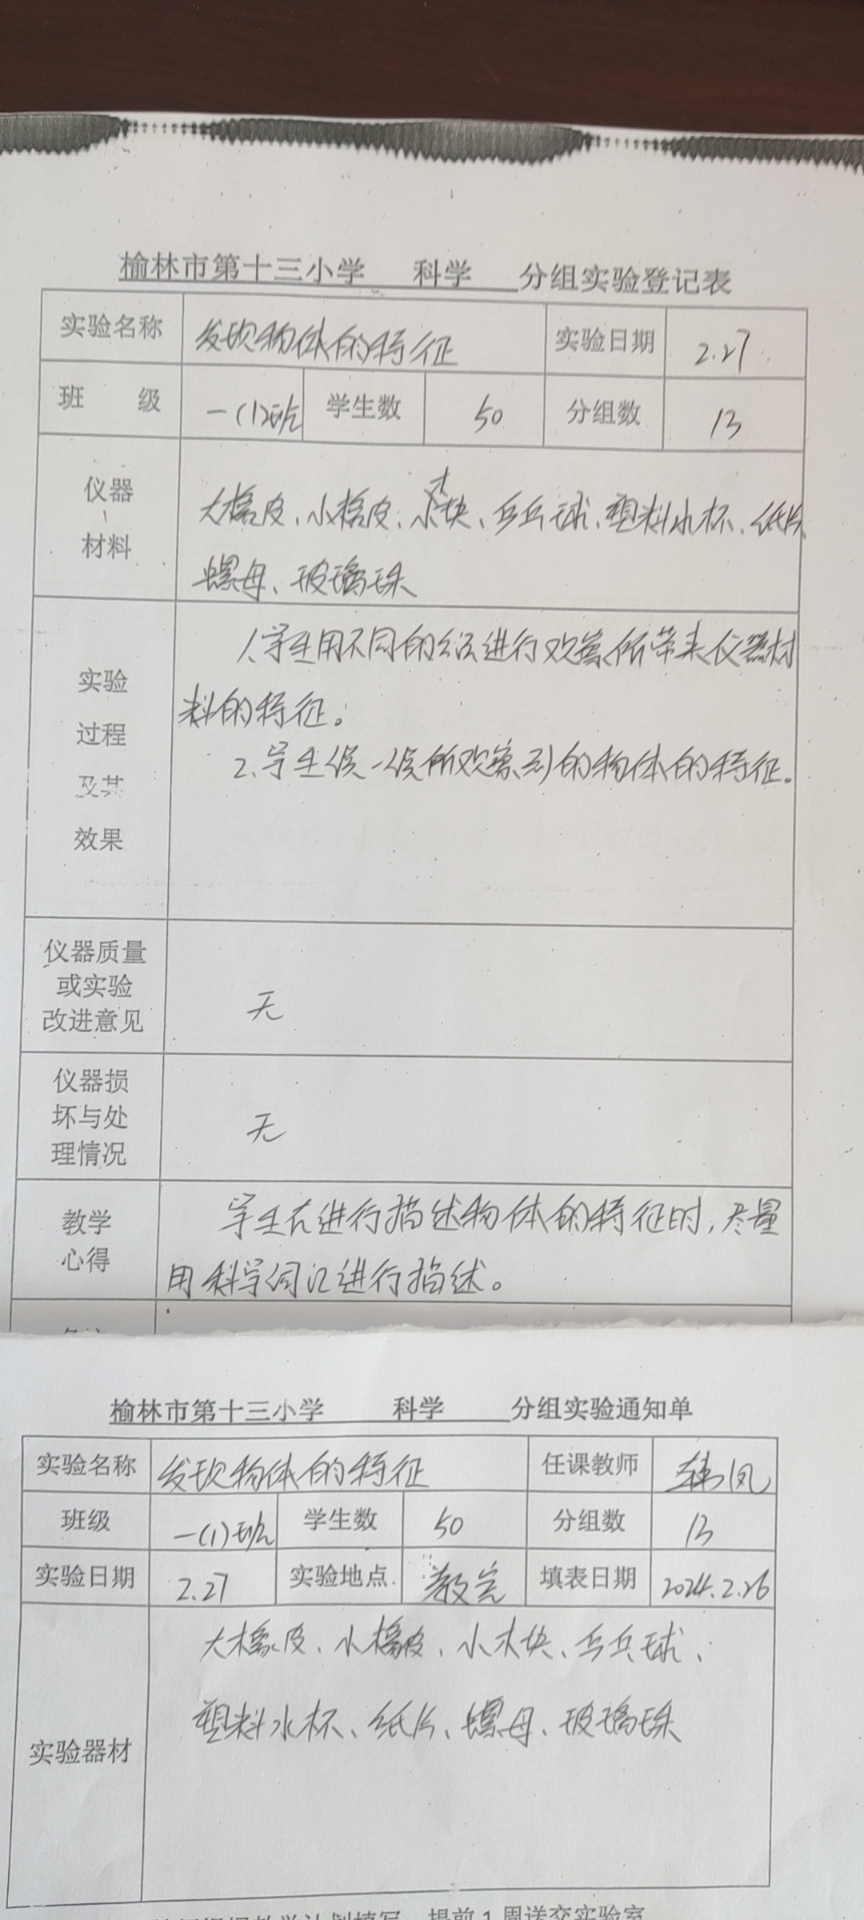 榆林市第十三小学 科学 分组实验登记表
实验名称 发现物体的特征 实验日期 2.27
班 级 一(1)班 学生数 50 分组数 13
仪器
材料
大橡皮、小橡皮、小木块、乒乓球、塑料水杯、纸片、
螺母、玻璃珠
实验
过程
及其
效果
1.学生用不同的方法进行观察所带来仪器材
料的特征。
2.学生说一说所观察到的物体的特征。
仪器质量
或实验
改进意见
无
仪器损
坏与处
理情况
无
教学
心得
学生在进行描述物体的特征时,尽量
用科学词汇进行描述。
榆林市第十三小学 科学 分组实验通知单
实验名称 发现物体的特征 任课教师 韩凤
班级 一(1)班 学生数 50 分组数 13
实验日期 2.27 实验地点 教室 填表日期 2024.2.26
实验器材
大橡皮、小橡皮、小木块、乒乓球、
塑料水杯、纸片、螺母、玻璃珠
提前1周送交实验室